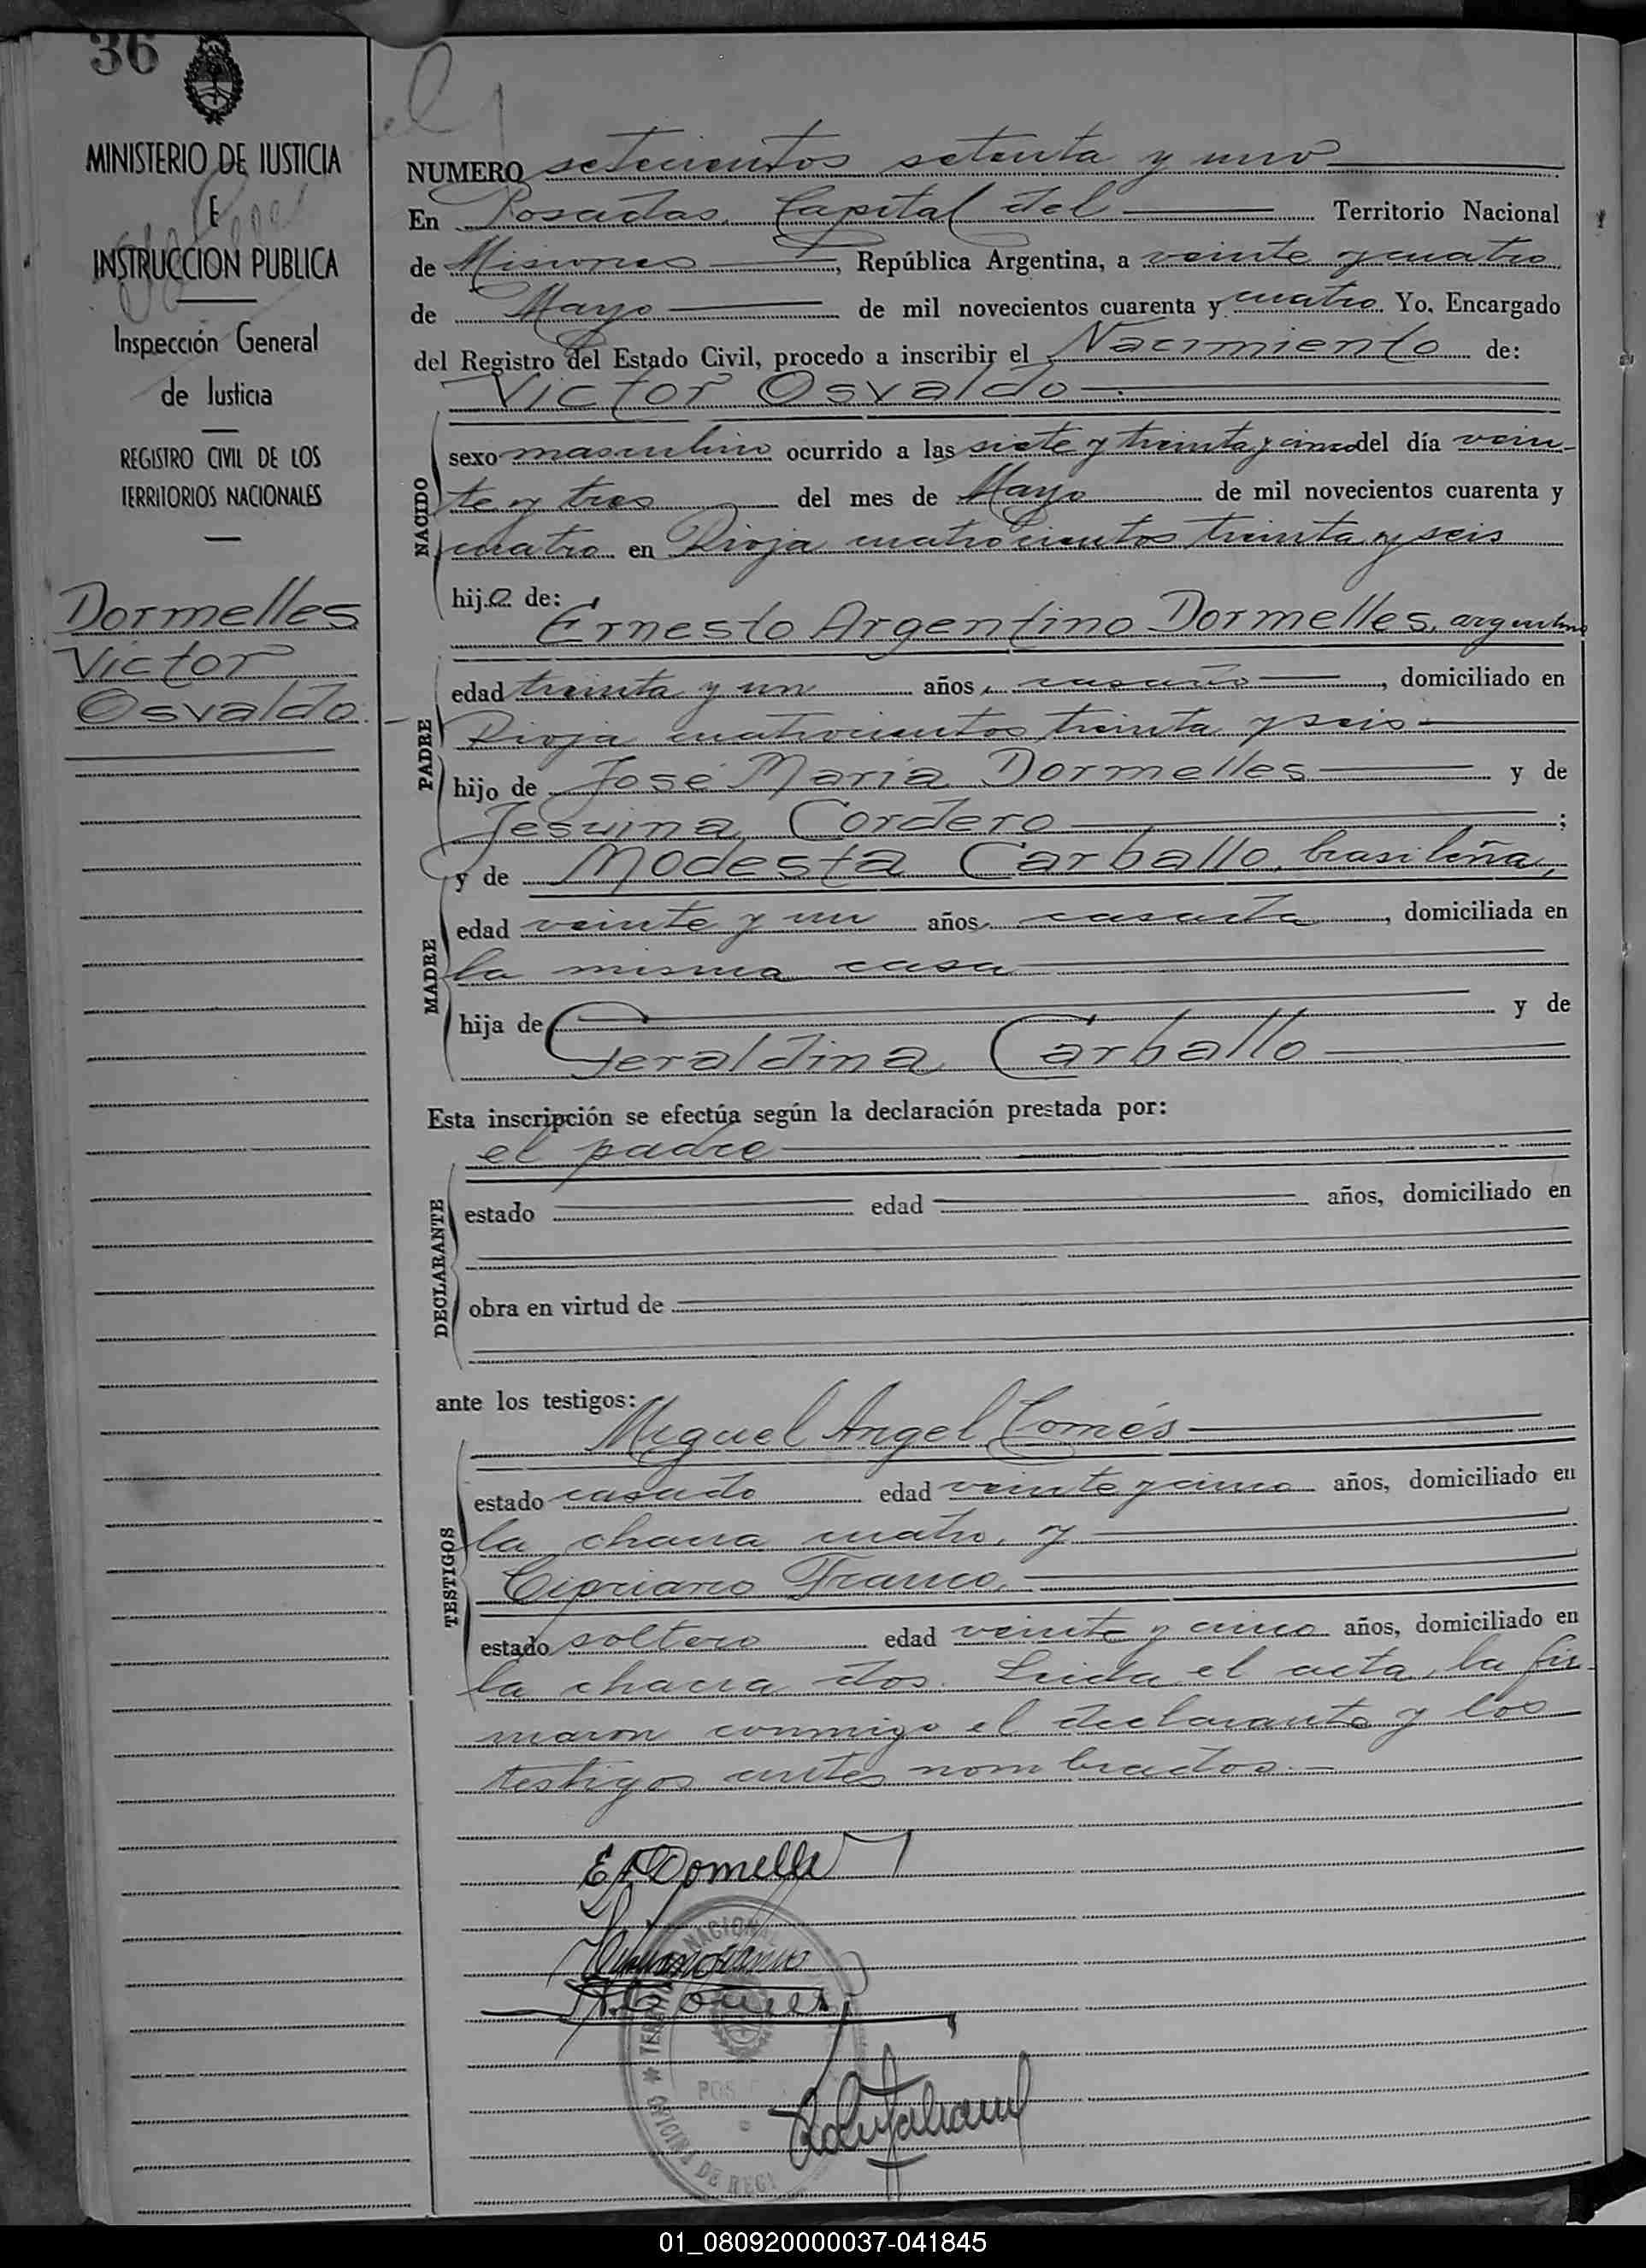 36
MINISTERIO DE JUSTICIA
E
INSTRUCCION PUBLICA
Inspección General
de Justicia
REGISTRO CIVIL DE LOS
TERRITORIOS NACIONALES
Dormelles
Victor
Osvaldo
NUMERO setecientos setenta y uno
En Posadas, Capital del Territorio Nacional
de Misiones, República Argentina, a veinte y cuatro
de Mayo de mil novecientos cuarenta y cuatro Yo, Encargado
del Registro del Estado Civil, procedo a inscribir el Nacimiento de:
Victor Osvaldo
NACIDO
sexo masculino ocurrido a las siete y treinta y cinco del día vein-
te y tres del mes de Mayo de mil novecientos cuarenta y
cuatro en Rioja cuatrocientos treinta y seis
hijo de:
Ernesto Argentino Dormelles, argentino
PADRE
edad treinta y un años, casado, domiciliado en
Rioja cuatrocientos treinta y seis
hijo de José María Dormelles y de
Jesuina Cordero ;
y de Modesta Carballo, brasileña,
MADRE
edad veinte y un años, casada, domiciliada en
la misma casa
hija de y de
Geraldina Carballo
Esta inscripción se efectúa según la declaración prestada por:
el padre
DECLARANTE
estado edad años, domiciliado en
obra en virtud de
ante los testigos:
Miguel Angel Comés
TESTIGOS
estado casado edad veinte y cinco años, domiciliado en
la chacra cuatro, y
Cipriano Franco,
estado soltero edad veinte y cinco años, domiciliado en
la chacra dos. Leida el acta, la fir-
maron conmigo el declarante y los
testigos antes nombrados.-
E A Dornelle
NACIONAL
OFICINA DE REGI
POS
01_080920000037-041845